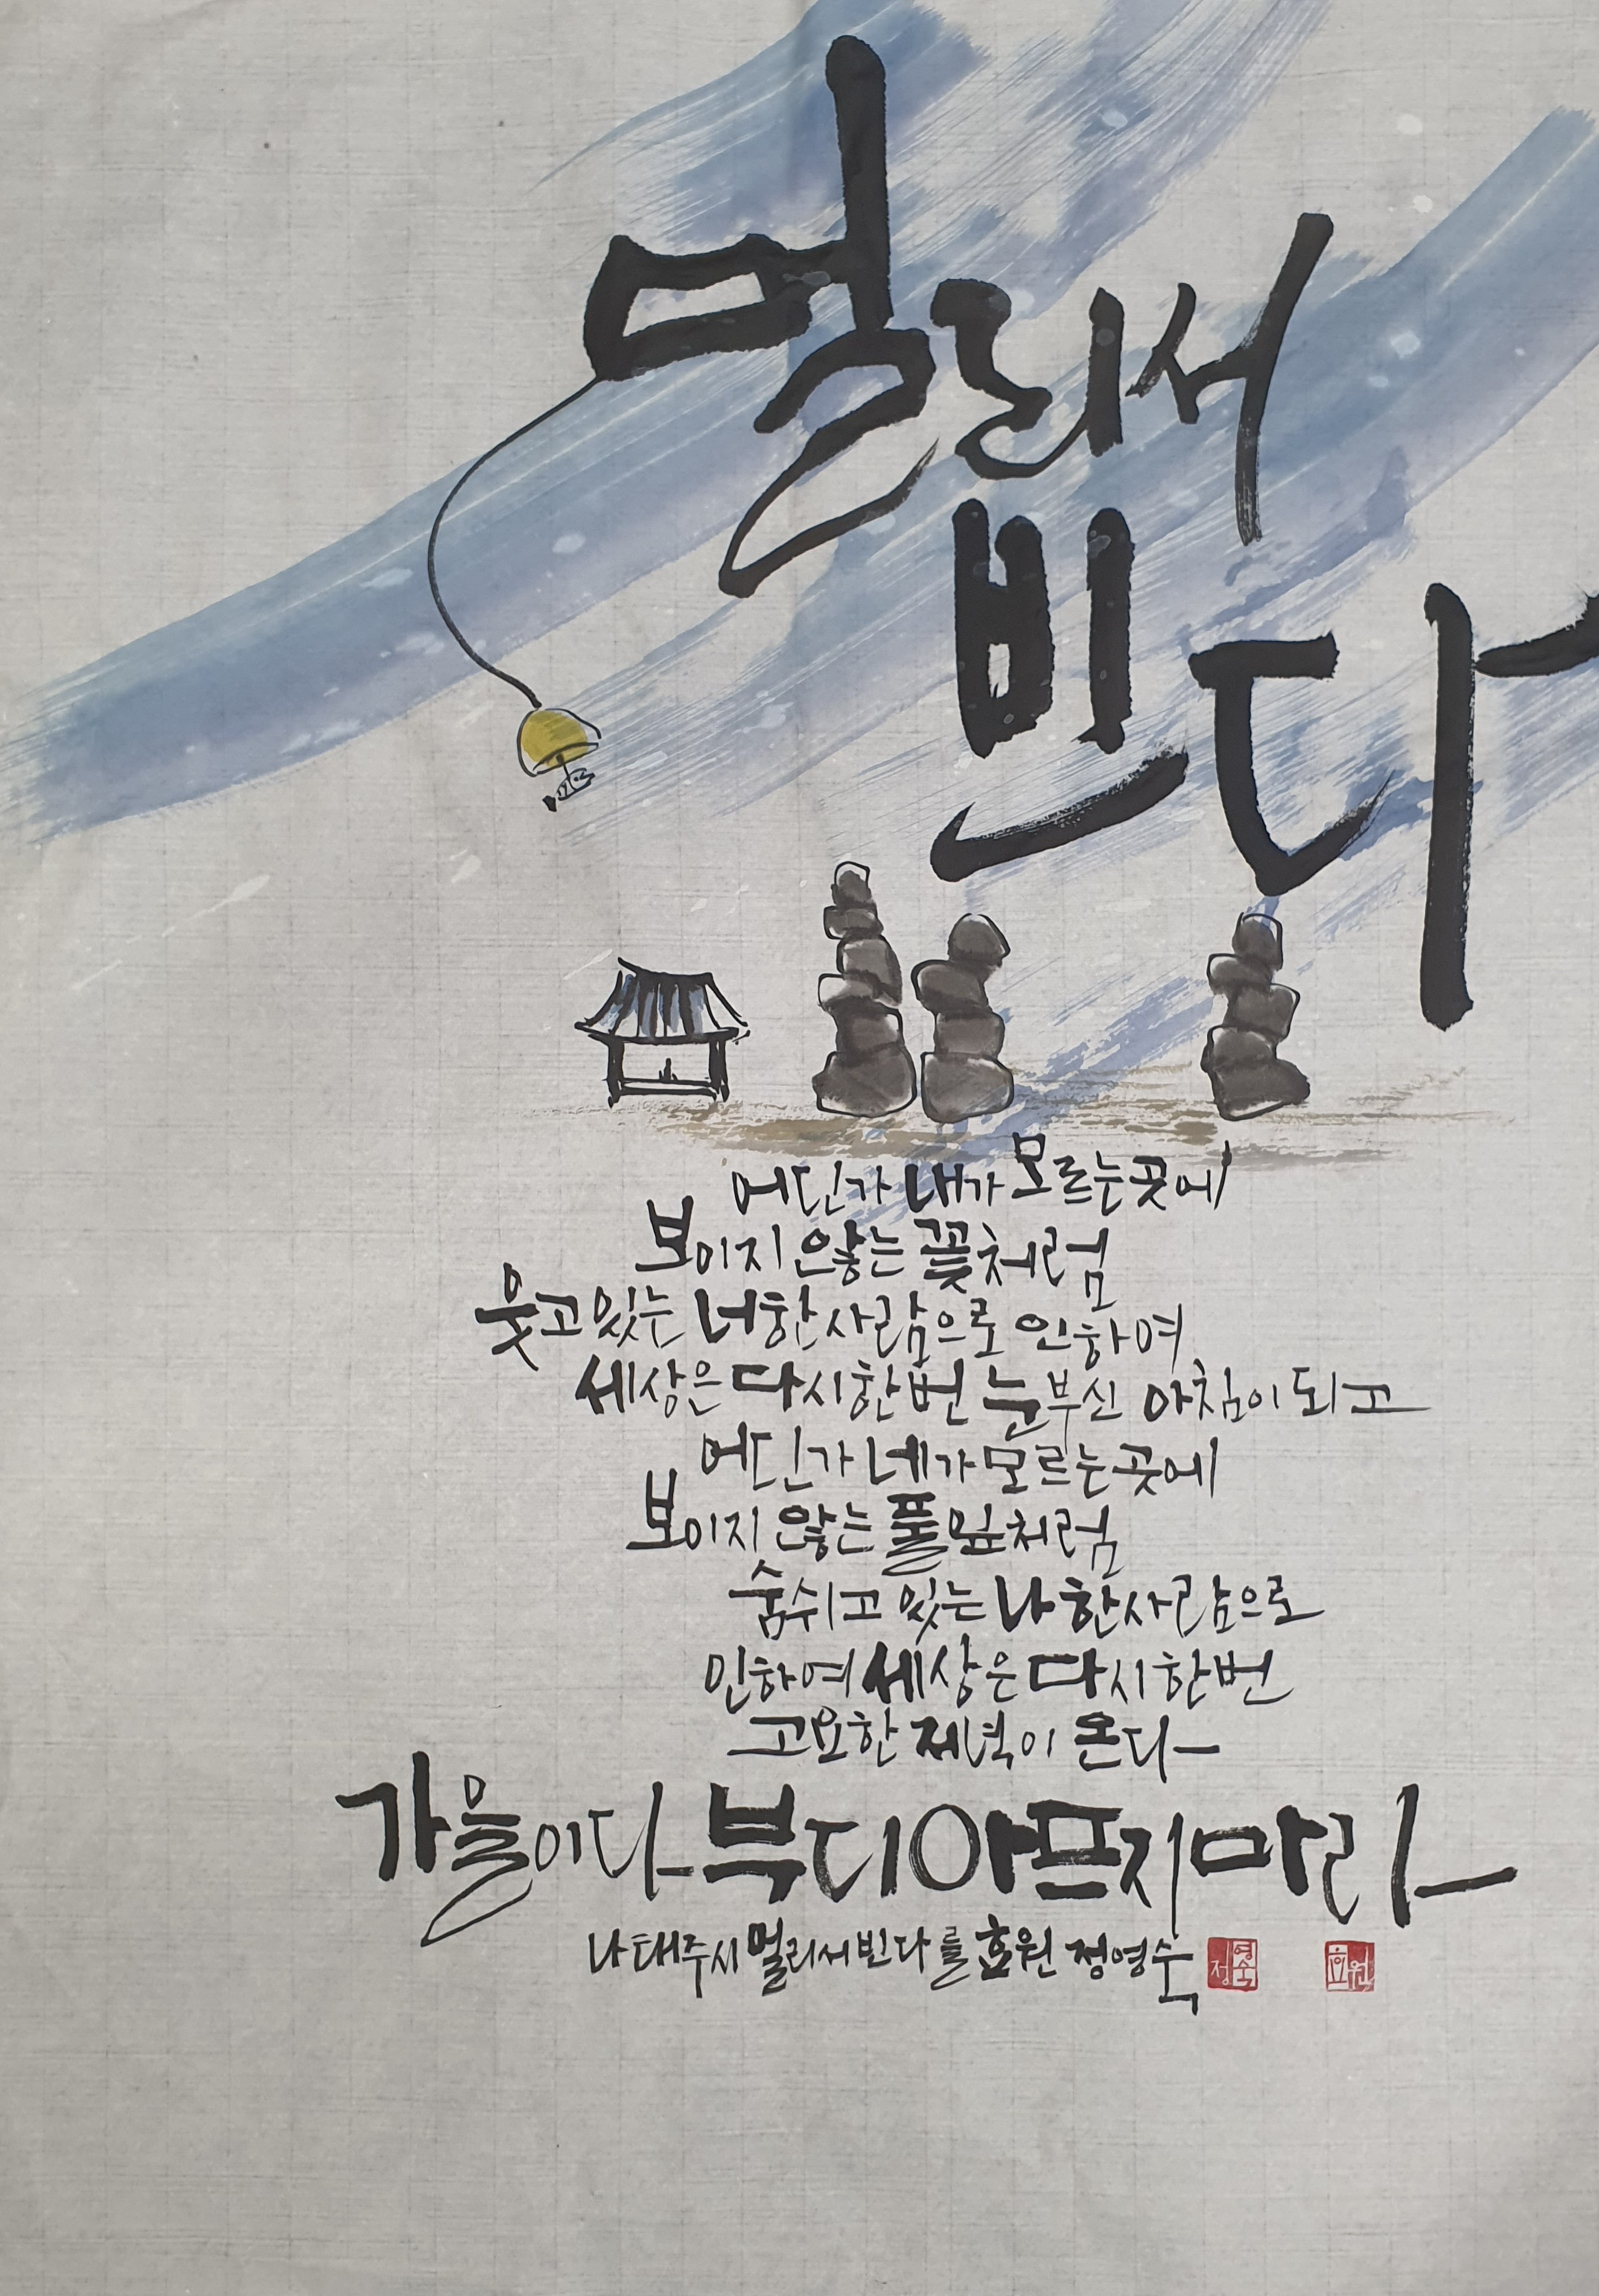 멀리서
빈다
어딘가 내가 모르는 곳에
보이지 않는 꽃처럼
웃고 있는 너 한 사람으로 인하여
세상은 다시 한번 눈부신 아침이 되고
어딘가 네가 모르는 곳에
보이지 않는 풀잎처럼
숨쉬고 있는 나 한 사람으로
인하여 세상은 다시 한번
고요한 저녁이 온다-
가을이다 부디 아프지 마라-
나태주 시 멀리서 빈다를 효원 정영숙
정영숙
효원